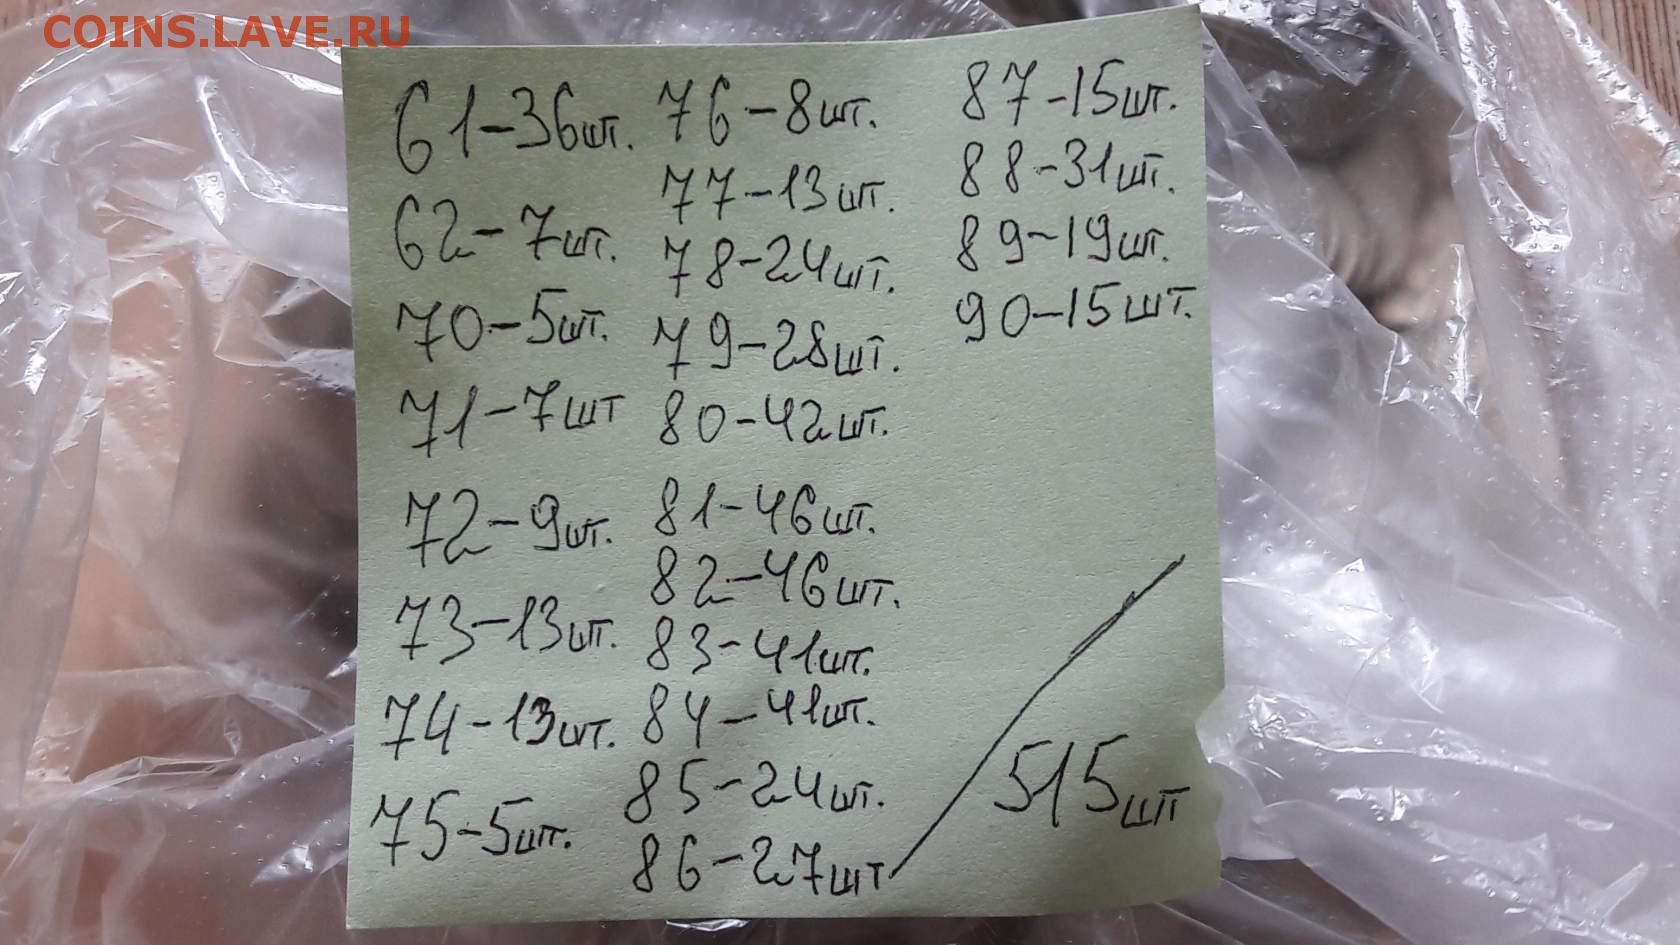 COINS.LAVE.RU
61-36шт.
62-7шт.
70-5шт.
71-7шт
72-9шт.
73-13шт.
74-13шт.
75-5шт.
76-8шт.
77-13шт.
78-24шт.
79-28шт.
80-42шт.
81-46шт.
82-46шт.
83-41шт.
84-41шт.
85-24шт.
86-27шт
87-15шт.
88-31шт.
89-19шт.
90-15шт.
515шт